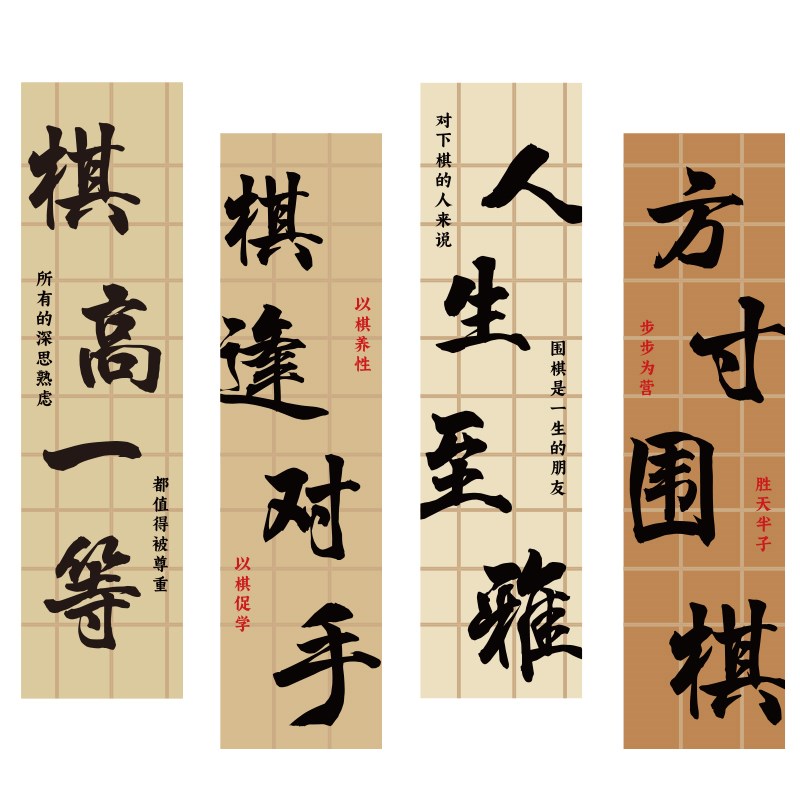 棋高一等
所有的深思熟虑
都值得被尊重
棋逢对手
以棋养性
以棋促学
人生至雅
对下棋的人来说
围棋是一生的朋友
方寸围棋
步步为营
胜天半子